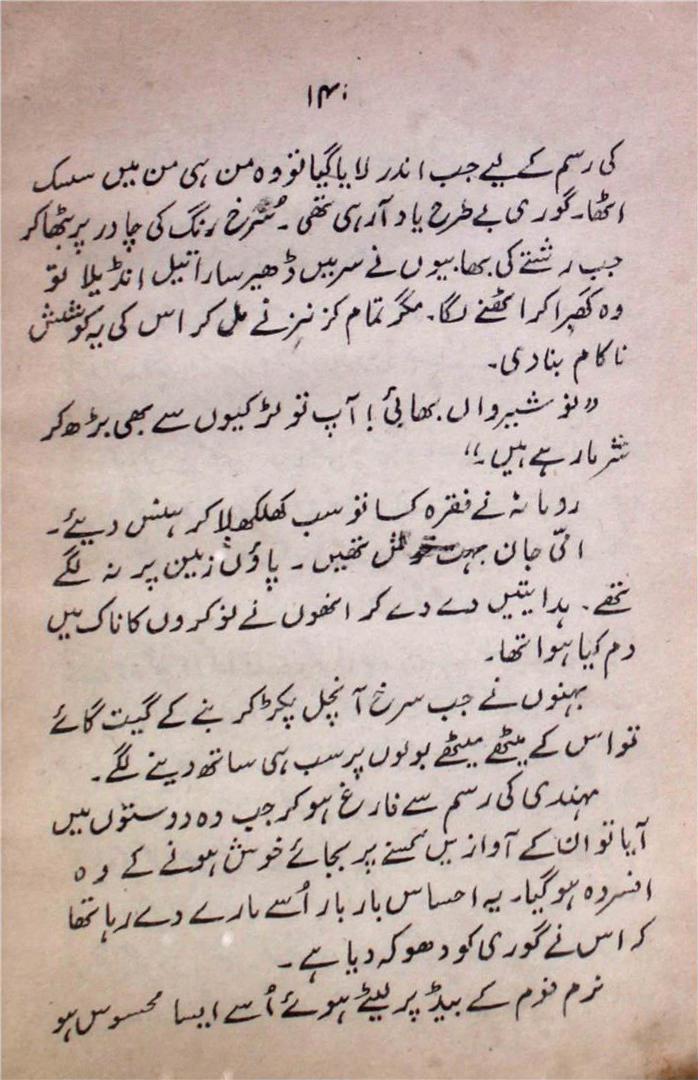 ۱۴۰
کی رسم کے لیے جب اندر لایا گیا تو وہ من ہی من میں سسک
اٹھا۔ گوری بے طرح یاد آرہی تھی ۔ سُرخ رنگ کی چادر پر بٹھا کر
جب رشتے کی بھابیوں نے سر میں ڈھیر سارا تیل انڈیلا تو
وہ گھبرا کر اٹھنے لگا۔ مگر تمام کزنیز نے مل کر اس کی یہ کوشش
ناکام بنادی۔
”نوشیرواں بھائی! آپ تو لڑکیوں سے بھی بڑھ کر
شرمار ہے ہیں۔“
رومانہ نے فقرہ کسا تو سب کھلکھلا کر ہنس دیئے۔
امّی جان بہت خوش تھیں ۔ پاؤں زمین پر نہ لگے
تھے۔ ہدایتیں دے دے کر انھوں نے نوکروں کا ناک میں
دم کیا ہوا تھا۔
بہنوں نے جب سرخ آنچل پکڑ کر بنے کے گیت گائے
تو اس کے میٹھے میٹھے بولوں پر سب ہی ساتھ دینے لگے۔
مہندی کی رسم سے فارغ ہو کر جب وہ دوستوں میں
آیا تو ان کے آوازیں کسنے پر بجائے خوش ہونے کے وہ
افسردہ ہو گیا۔ یہ احساس بار بار اُسے مارے دے رہا تھا
کہ اس نے گوری کو دھوکہ دیا ہے ۔
نرم فوم کے بیڈ پر لیٹے ہوئے اُسے ایسا محسوس ہو